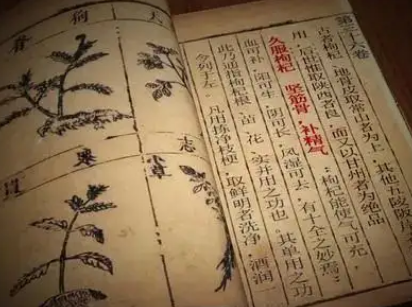 第三十六卷
古者枸杞、地骨皮取常山者为上，其他丘陵阪
用，后世惟取陕西者良，而又以甘州者为绝品
久服枸杞 坚筋骨，补精气
枸杞能使气可充，
血可补，阳可生，阴可长，风湿可去，有十全之妙焉
此乃通指枸杞根、苗、花、实并用之功也 其单用之功
今列于左 凡用拣净枝梗，取鲜明者洗净，酒润一
大
荷
志
小草